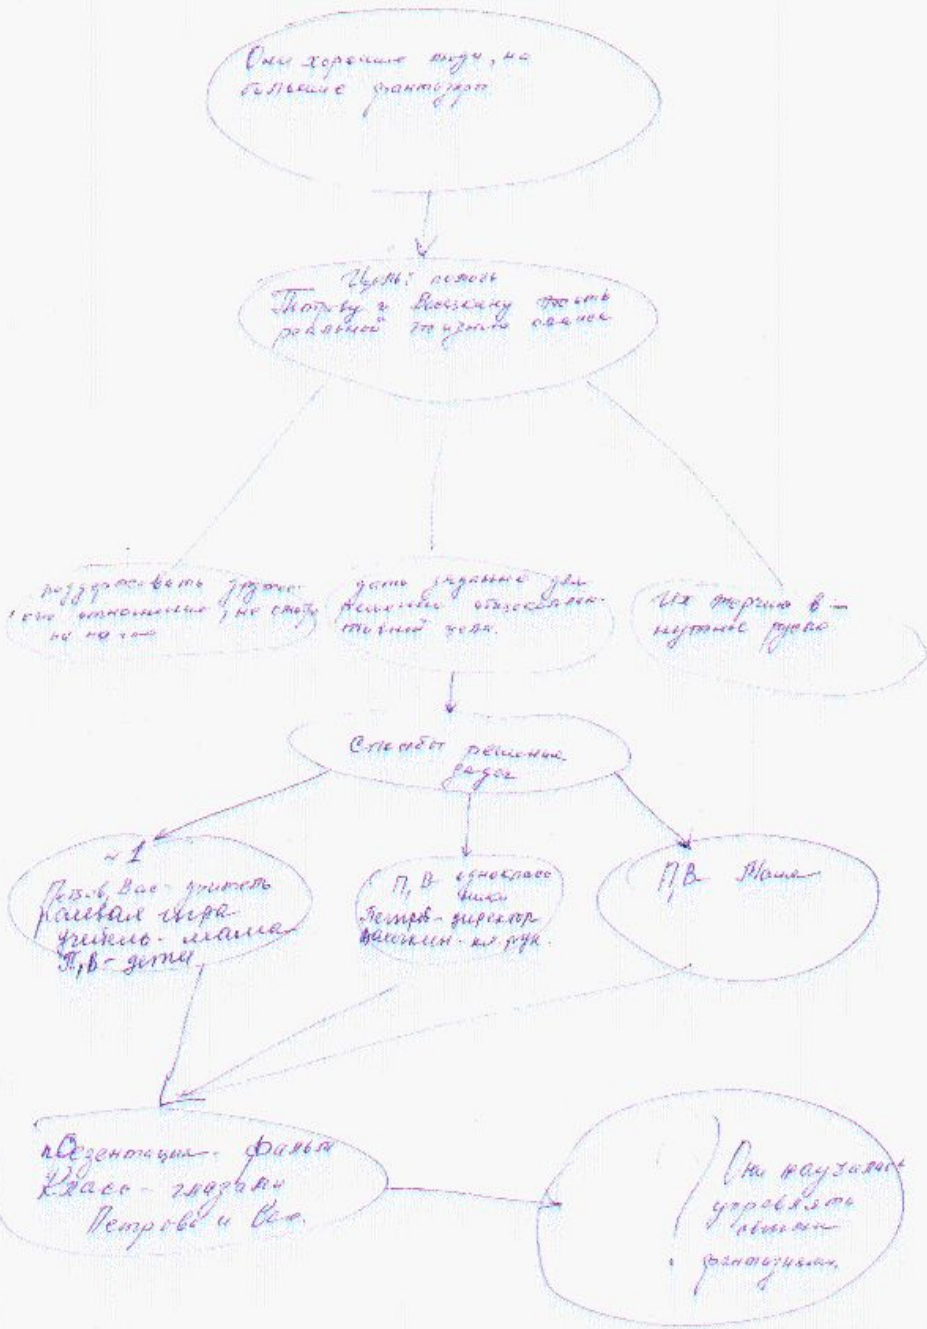 Они хорошие люди, но
большие фантазёры
Цель: помочь
Петрову и Васечкину жить
реальной жизнью класса
поддерживать дружес-
отношения, не смотр
ни на что
дать задание для
цели.
Их энергию в
нужное русло
Способы решения
задач
1
Петров, Вас- учитель
ролевая игра
учитель- мама
П, В- дети
П, В однокласс
ники
Петров- директор
Васечкин- кл. рук.
П, В Маша
презентация- фильм
Класс- глазами
Петрова и Вас.
Они научились
управлять
своими
фантазиями.